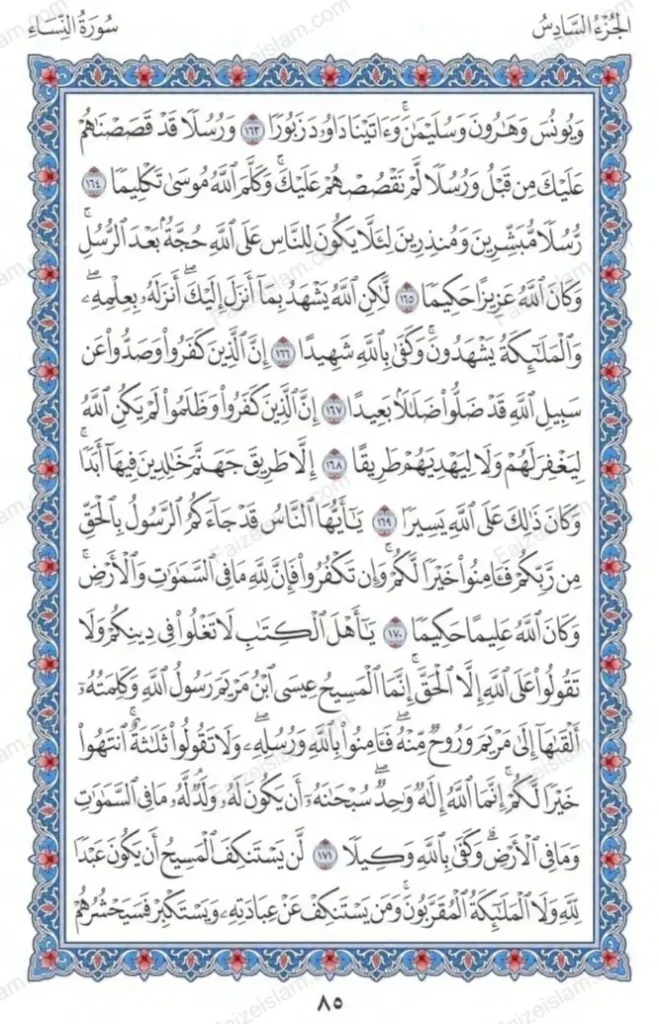 الجُزْءُ السَّادِسُ
سُورَةُ النِّسَاءِ
وَيُونُسَ وَهَٰرُونَ وَسُلَيْمَٰنَۚ وَءَاتَيْنَا دَاوُۥدَ زَبُورًا ١٦٣ وَرُسُلًا قَدْ قَصَصْنَٰهُمْ
عَلَيْكَ مِن قَبْلُ وَرُسُلًا لَّمْ نَقْصُصْهُمْ عَلَيْكَۚ وَكَلَّمَ ٱللَّهُ مُوسَىٰ تَكْلِيمًا ١٦٤
رُّسُلًا مُّبَشِّرِينَ وَمُنذِرِينَ لِئَلَّا يَكُونَ لِلنَّاسِ عَلَى ٱللَّهِ حُجَّةٌۢ بَعْدَ ٱلرُّسُلِۚ
وَكَانَ ٱللَّهُ عَزِيزًا حَكِيمًا ١٦٥ لَّٰكِنِ ٱللَّهُ يَشْهَدُ بِمَآ أَنزَلَ إِلَيْكَۖ أَنزَلَهُۥ بِعِلْمِهِۦۖ
وَٱلْمَلَٰٓئِكَةُ يَشْهَدُونَۚ وَكَفَىٰ بِٱللَّهِ شَهِيدًا ١٦٦ إِنَّ ٱلَّذِينَ كَفَرُوا۟ وَصَدُّوا۟ عَن
سَبِيلِ ٱللَّهِ قَدْ ضَلُّوا۟ ضَلَٰلًۢا بَعِيدًا ١٦٧ إِنَّ ٱلَّذِينَ كَفَرُوا۟ وَظَلَمُوا۟ لَمْ يَكُنِ ٱللَّهُ
لِيَغْفِرَ لَهُمْ وَلَا لِيَهْدِيَهُمْ طَرِيقًا ١٦٨ إِلَّا طَرِيقَ جَهَنَّمَ خَٰلِدِينَ فِيهَآ أَبَدًاۚ
وَكَانَ ذَٰلِكَ عَلَى ٱللَّهِ يَسِيرًا ١٦٩ يَٰٓأَيُّهَا ٱلنَّاسُ قَدْ جَآءَكُمُ ٱلرَّسُولُ بِٱلْحَقِّ
مِن رَّبِّكُمْ فَـَٔامِنُوا۟ خَيْرًا لَّكُمْۚ وَإِن تَكْفُرُوا۟ فَإِنَّ لِلَّهِ مَا فِى ٱلسَّمَٰوَٰتِ وَٱلْأَرْضِۚ
وَكَانَ ٱللَّهُ عَلِيمًا حَكِيمًا ١٧٠ يَٰٓأَهْلَ ٱلْكِتَٰبِ لَا تَغْلُوا۟ فِى دِينِكُمْ وَلَا
تَقُولُوا۟ عَلَى ٱللَّهِ إِلَّا ٱلْحَقَّۚ إِنَّمَا ٱلْمَسِيحُ عِيسَى ٱبْنُ مَرْيَمَ رَسُولُ ٱللَّهِ وَكَلِمَتُهُۥٓ
أَلْقَىٰهَآ إِلَىٰ مَرْيَمَ وَرُوحٌ مِّنْهُۖ فَـَٔامِنُوا۟ بِٱللَّهِ وَرُسُلِهِۦۖ وَلَا تَقُولُوا۟ ثَلَٰثَةٌۚ ٱنتَهُوا۟
خَيْرًا لَّكُمْۚ إِنَّمَا ٱللَّهُ إِلَٰهٌ وَٰحِدٌۖ سُبْحَٰنَهُۥٓ أَن يَكُونَ لَهُۥ وَلَدٌۘ لَّهُۥ مَا فِى ٱلسَّمَٰوَٰتِ
وَمَا فِى ٱلْأَرْضِۗ وَكَفَىٰ بِٱللَّهِ وَكِيلًا ١٧١ لَّن يَسْتَنكِفَ ٱلْمَسِيحُ أَن يَكُونَ عَبْدًا
لِّلَّهِ وَلَا ٱلْمَلَٰٓئِكَةُ ٱلْمُقَرَّبُونَۚ وَمَن يَسْتَنكِفْ عَنْ عِبَادَتِهِۦ وَيَسْتَكْبِرْ فَسَيَحْشُرُهُمْ
٨٥
Faizeislam.com